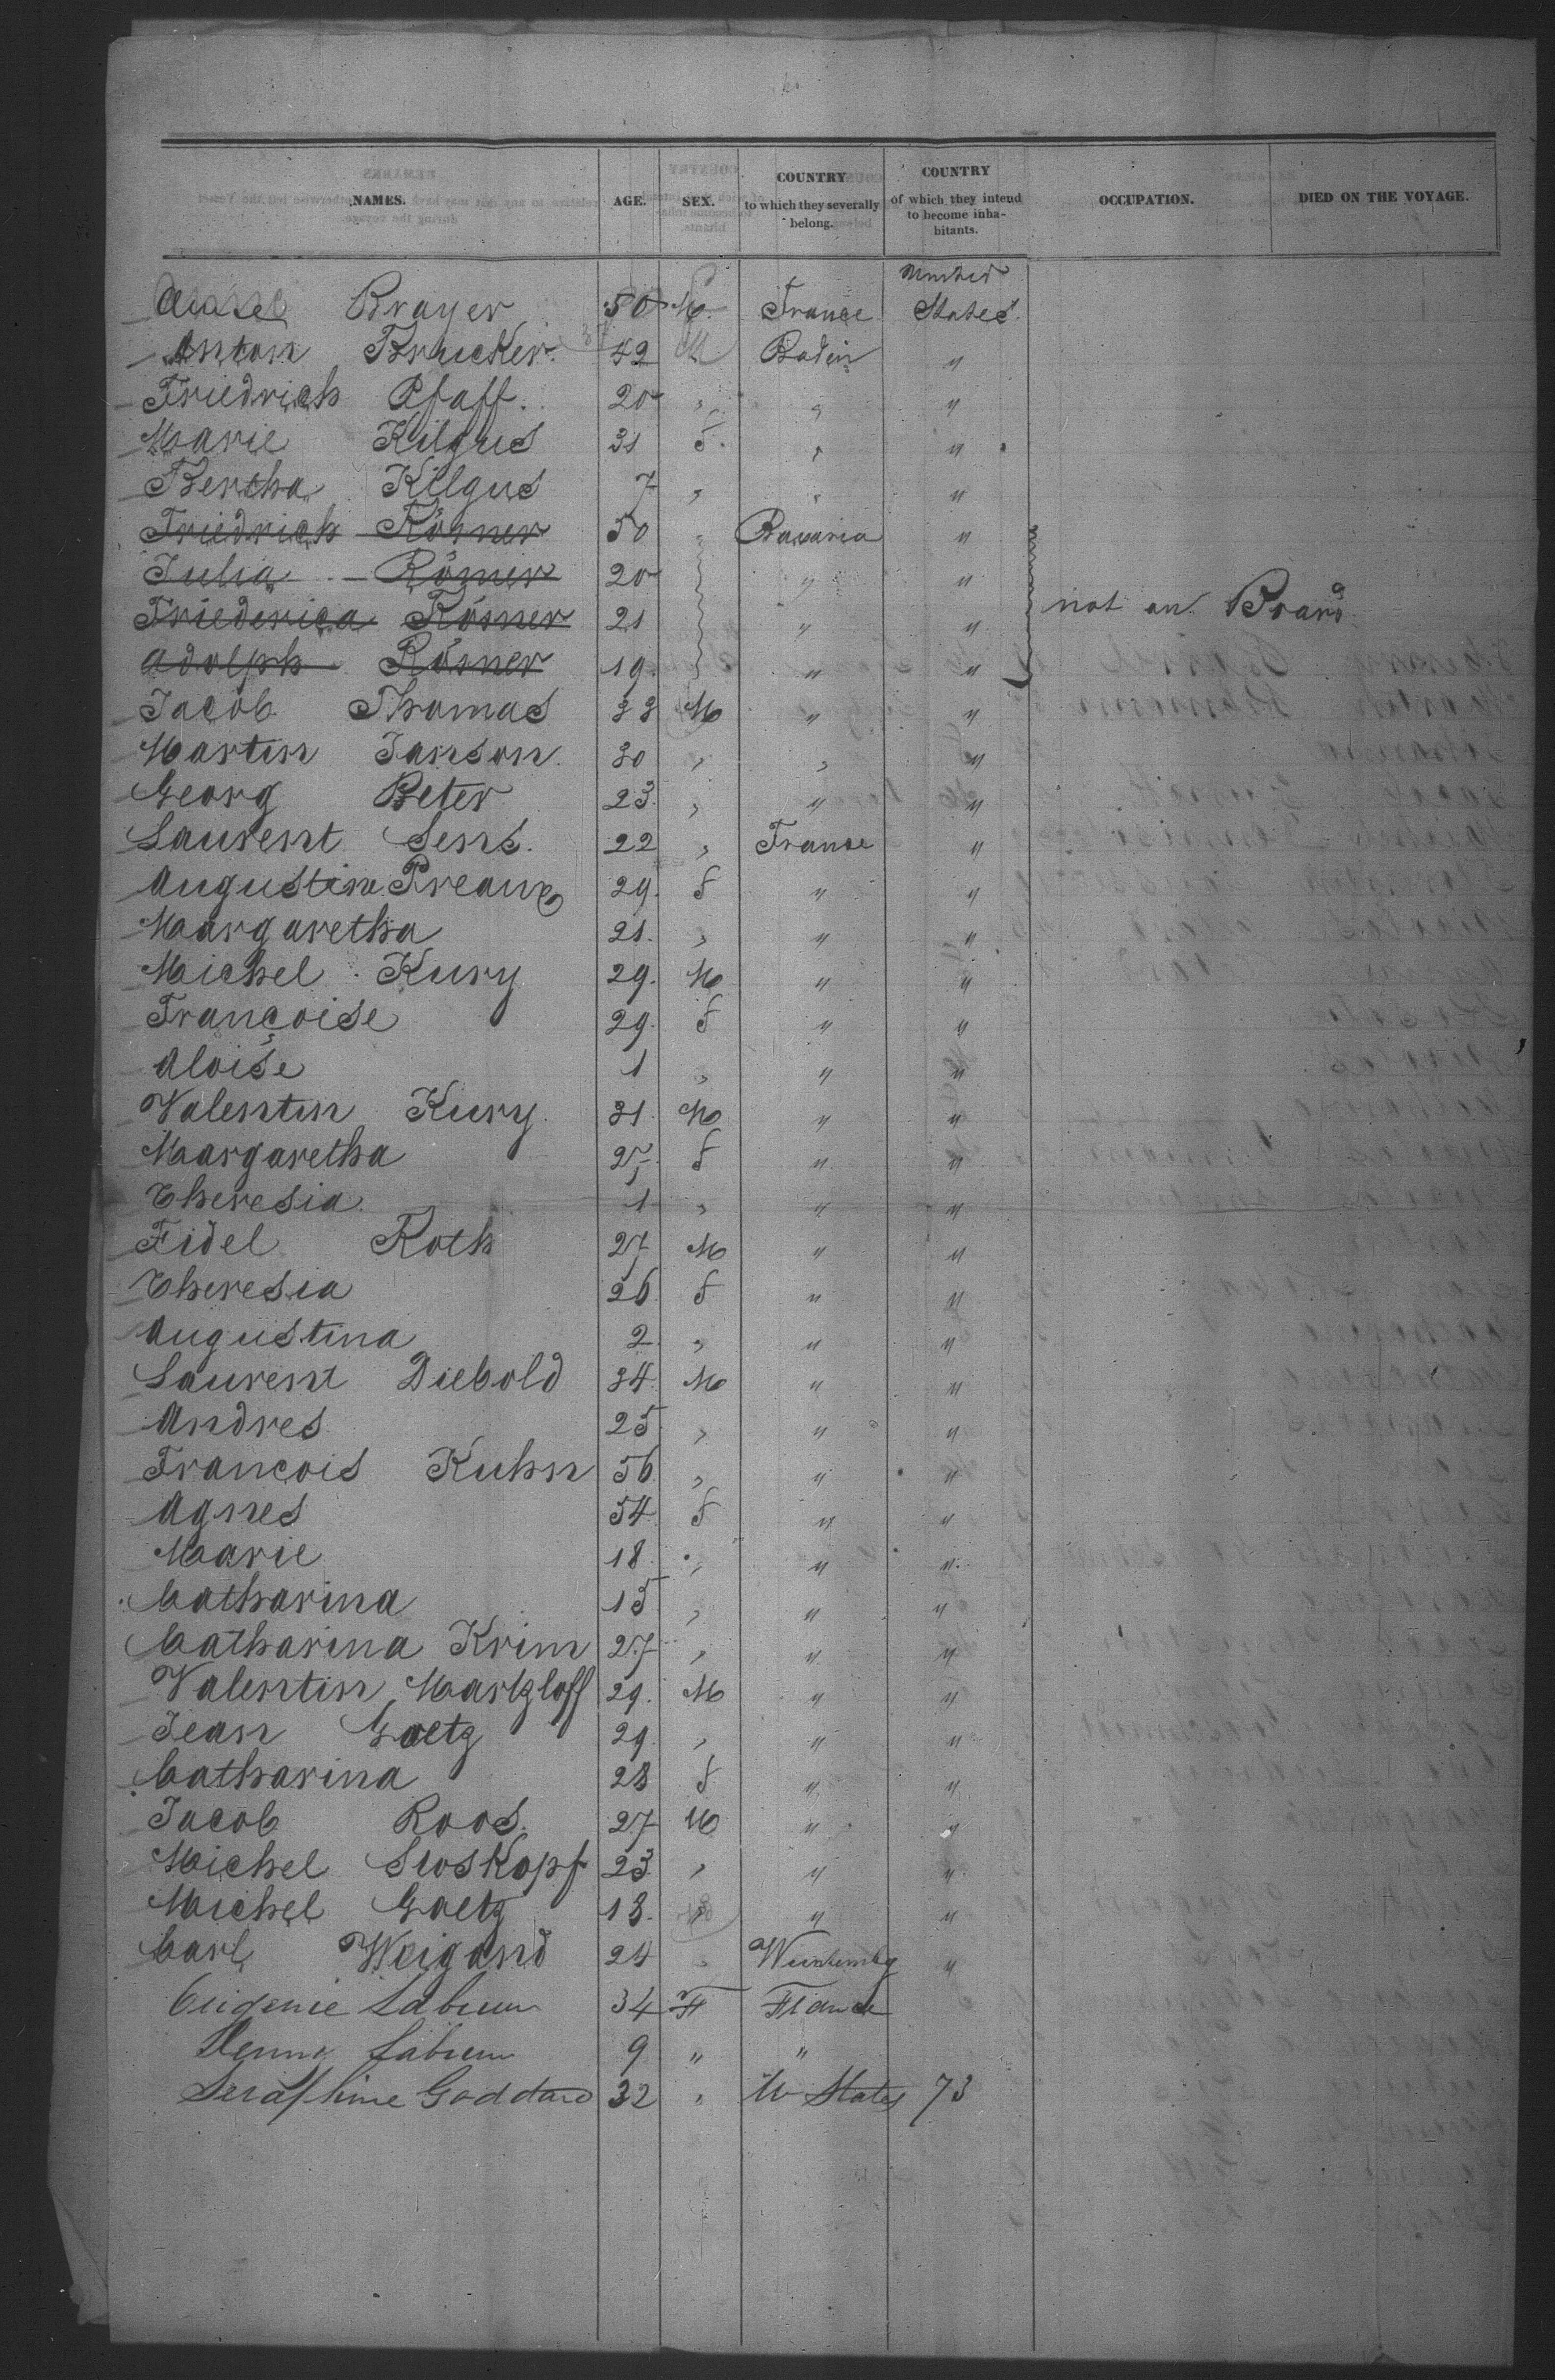 NAMES. AGE. SEX. COUNTRY to which they severally belong. COUNTRY of which they intend to become inhabitants. OCCUPATION. DIED ON THE VOYAGE.
United
Brayer 50 M. France States.
Anton Brucker. 42 M Baden "
Friedrich Pfaff. 20 " " "
Marie Kilgus 31 F. " "
Bertha Kilgus 7 " " "
Friedrich Rösner 50 " Bavaria "
Julia Rösner 20 " "
not on Board
Friederica Rösner 21 " "
Adolph Rösner 19. " "
Jacob Thomas 33 M " "
Martin Janson. 30 " " "
Georg Peter 23. " " "
Laurent Sens. 22 " France "
Augustine Preaux 29. F " "
Margaretha 21. " " "
Michel Kury 29. M " "
Françoise 29. F " "
Aloise 1 " " "
Valentin Kury. 31. M " "
Margaretha 27 F " "
Theresia. 1 " " "
Fidel Roth 27 M " "
Theresia 26. F " "
Augustina 2 " " "
Laurent Diebold 34 M " "
Andres 25 " " "
Francois Kuhn 56 " " "
Agnes 54 F " "
Marie 18 " " "
Catharina 15 " " "
Catharina Krim 27 " " "
Valentin Martzloff 29. M " "
Jean Goetz 29 " " "
Catharina 28 F " "
Jacob Roos. 27 M " "
Michel Suskopf 23 " " "
Michel Goetz 18. " " "
Carl Weigand 24 " Wurtembg "
Eugenie 34 F France
9 " "
Seraphine Goddard 32 " U States 73